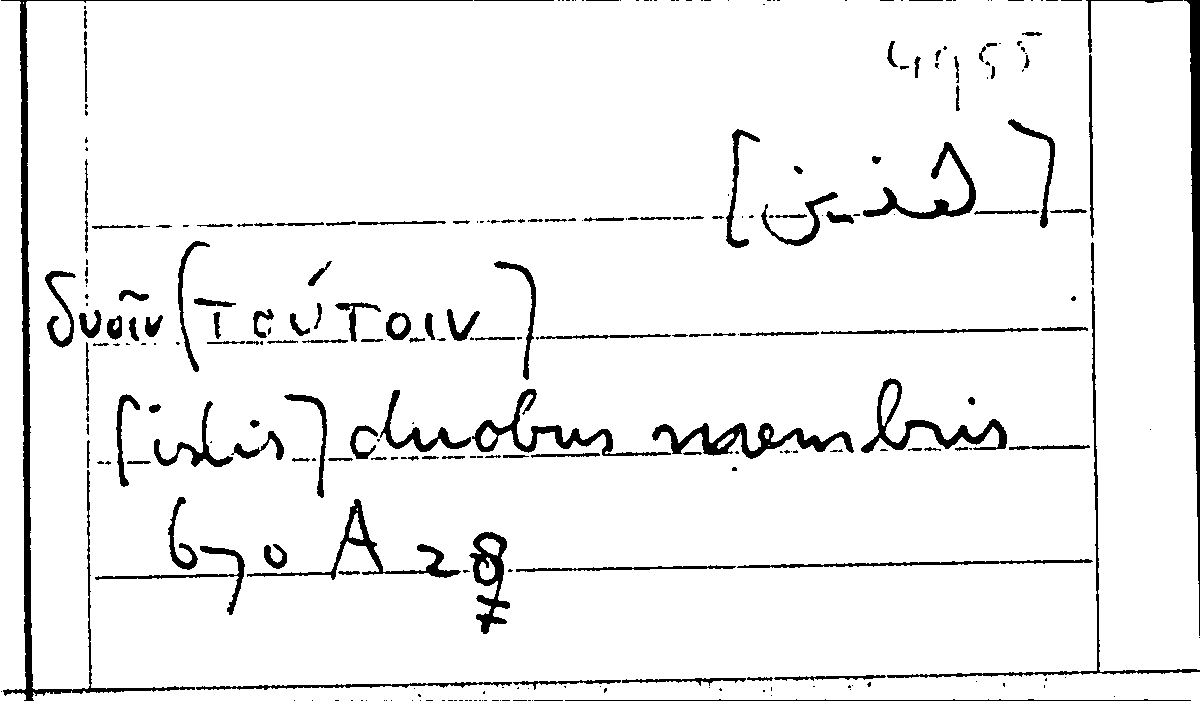 4955
δυοῖν [τούτοιν]
[istis] duobus membris
670 A 28
7